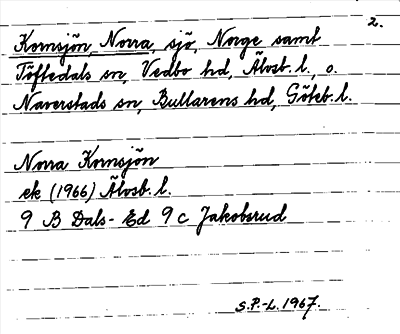 2.
Kornsjön, Norra, sjö, Norge samt
Töftedals sn, Vedbo hd, Älvsb. l., o.
Naverstads sn, Bullarens hd, Göteb. l.
Norra Kornsjön
ek (1966) Älvsb. l.
9 B Dals-Ed 9 c Jakobsrud
S.P.-L. 1967.